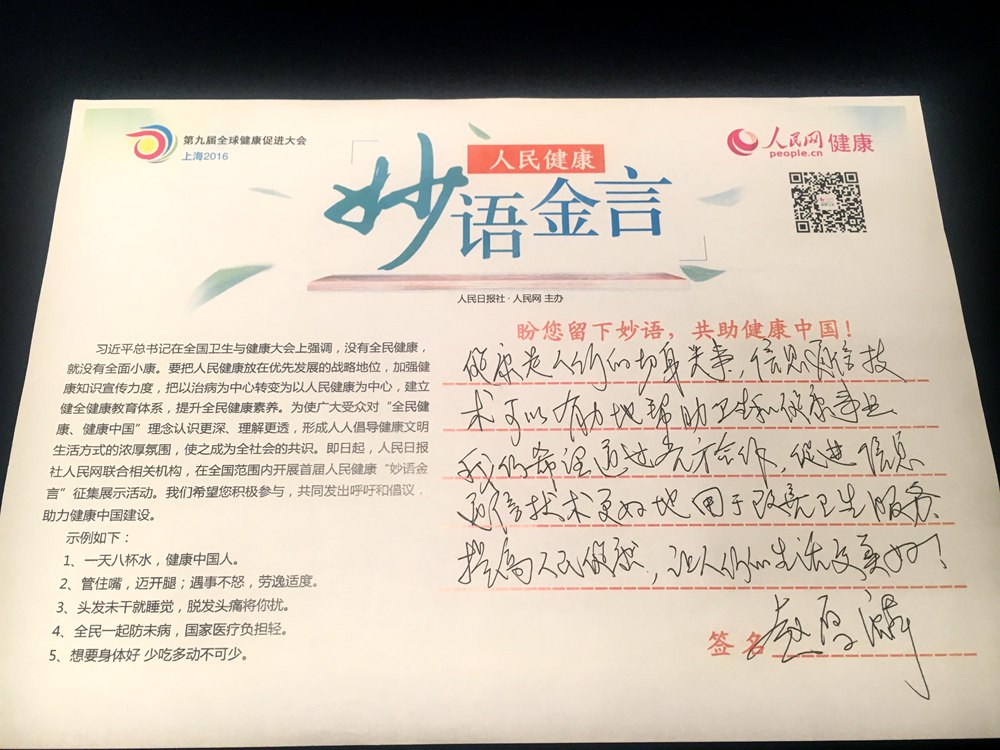 第九届全球健康促进大会
上海2016
人民网 健康
people.cn
人民健康
妙语金言
人民日报社·人民网 主办
盼您留下妙语，共助健康中国！
习近平总书记在全国卫生与健康大会上强调，没有全民健康，
就没有全面小康。要把人民健康放在优先发展的战略地位，加强健
康知识宣传力度，把以治病为中心转变为以人民健康为中心，建立
健全健康教育体系，提升全民健康素养。为使广大受众对“全民健
康、健康中国”理念认识更深、理解更透，形成人人倡导健康文明
生活方式的浓厚氛围，使之成为全社会的共识。即日起，人民日报
社人民网联合相关机构，在全国范围内开展首届人民健康“妙语金
言”征集展示活动。我们希望您积极参与，共同发出呼吁和倡议，
助力健康中国建设。
示例如下：
1、一天八杯水，健康中国人。
2、管住嘴，迈开腿；遇事不怒，劳逸适度。
3、头发未干就睡觉，脱发头痛将你扰。
4、全民一起防未病，国家医疗负担轻。
5、想要身体好 少吃多动不可少。
健康是人们的切身大事，信息通信技
术可以有力地帮助卫生和健康事业
我们希望通过各方合作，促进信息
通信技术更好地用于改善卫生服务
提高人民健康，让人们的生活更美好！
签名 赵厚麟